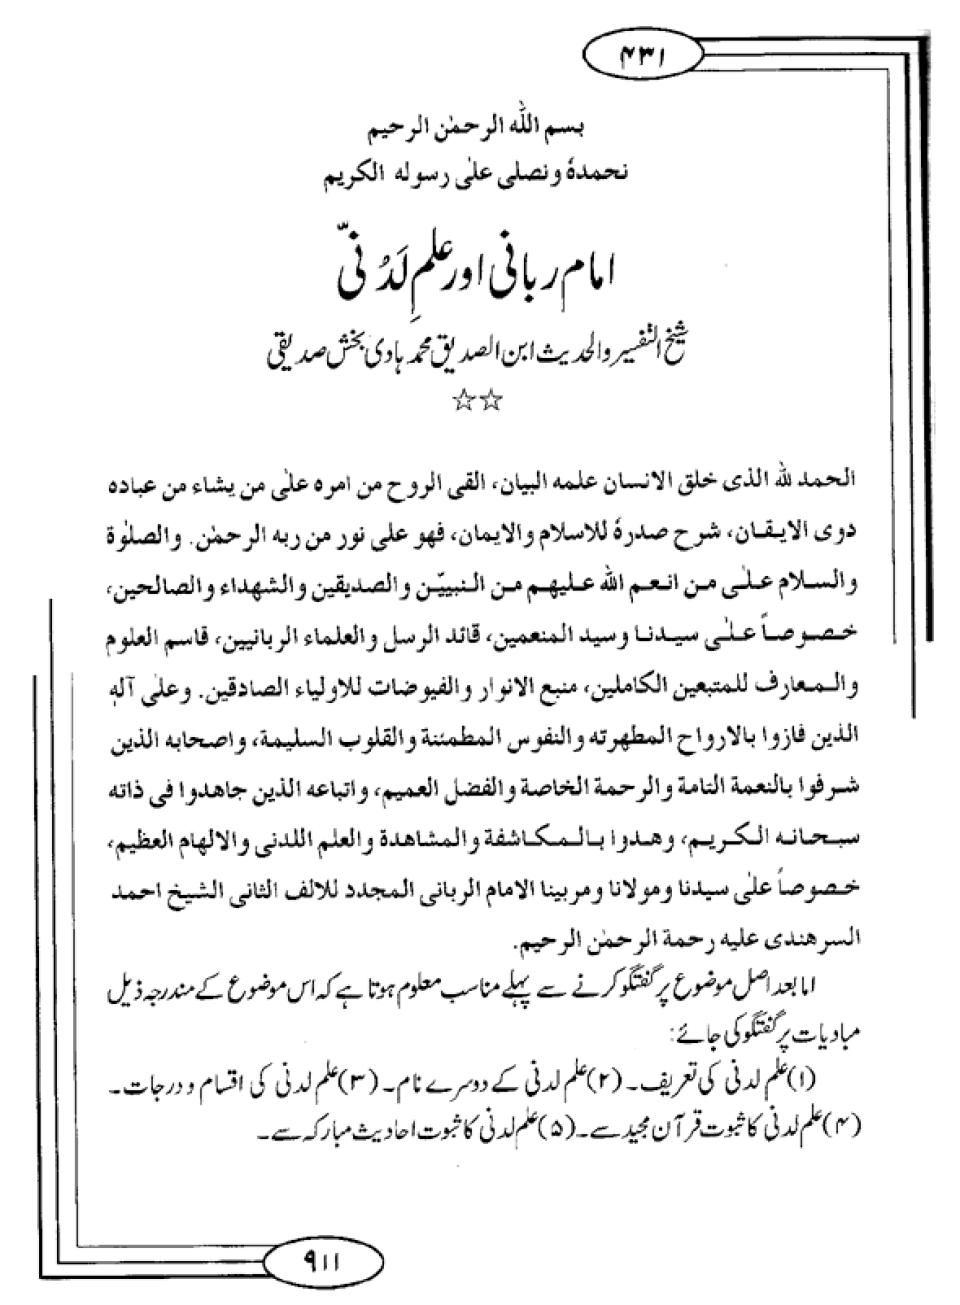 ۴۳۱
بسم الله الرحمٰن الرحيم
نحمدهٗ ونصلى علىٰ رسوله الكريم
امام ربانی اور علمِ لَدُنّیّ
شیخ التفسیر والحدیث ابن الصدیق محمد ہادی بخش صدیقی
☆☆
الحمد لله الذى خلق الانسان علمه البيان، القى الروح من امره علىٰ من يشاء من عباده
ذوى الايقان، شرح صدرهٗ للاسلام والايمان، فهو على نور من ربه الرحمٰن. والصلوٰة
والسلام علىٰ من انعم الله عليهم من النبيّن والصديقين والشهداء والصالحين،
خصوصاً علىٰ سيدنا وسيد المنعمين، قائد الرسل والعلماء الربانيين، قاسم العلوم
والمعارف للمتبعين الكاملين، منبع الانوار والفيوضات للاولياء الصادقين. وعلى آلهٖ
الذين فازوا بالارواح المطهرته والنفوس المطمئنة والقلوب السليمة، واصحابه الذين
شرفوا بالنعمة التامة والرحمة الخاصة والفضل العميم، واتباعه الذين جاهدوا فى ذاته
سبحانه الكريم، وهدوا بالمكاشفة والمشاهدة والعلم اللدنى والالهام العظيم،
خصوصاً علىٰ سيدنا ومولانا ومربينا الامام الربانى المجدد للالف الثانى الشيخ احمد
السرهندى عليه رحمة الرحمٰن الرحيم.
اما بعد اصل موضوع پر گفتگو کرنے سے پہلے مناسب معلوم ہوتا ہے کہ اس موضوع کے مندرجہ ذیل
مبادیات پر گفتگو کی جائے:
(۱) علم لدنی کی تعریف۔ (۲) علم لدنی کے دوسرے نام۔ (۳) علم لدنی کی اقسام و درجات۔
(۴) علم لدنی کا ثبوت قرآن مجید سے۔ (۵) علم لدنی کا ثبوت احادیث مبارکہ سے۔
۹۱۱